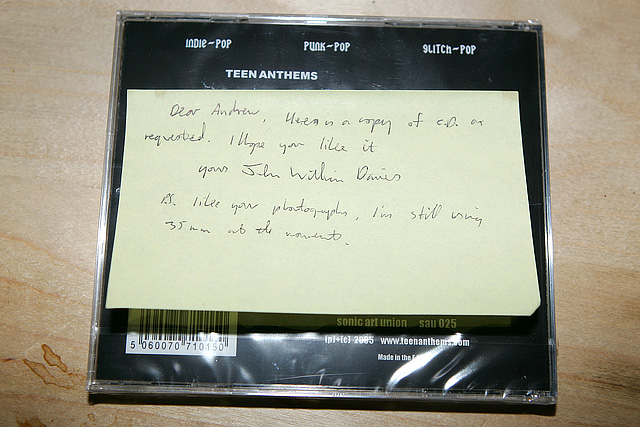 INDIE-POP PUNK-POP GLITCH-POP
TEEN ANTHEMS
Dear Andrew, Here is a copy of C.D. as
requested. I hope you like it
yours John William Davies
P.S. like your photographs, I'm still using
35mm at the moment.
sonic art union sau 025
(p)+(c) 2005 www.teenanthems.com
Made in the
5 060070 710150